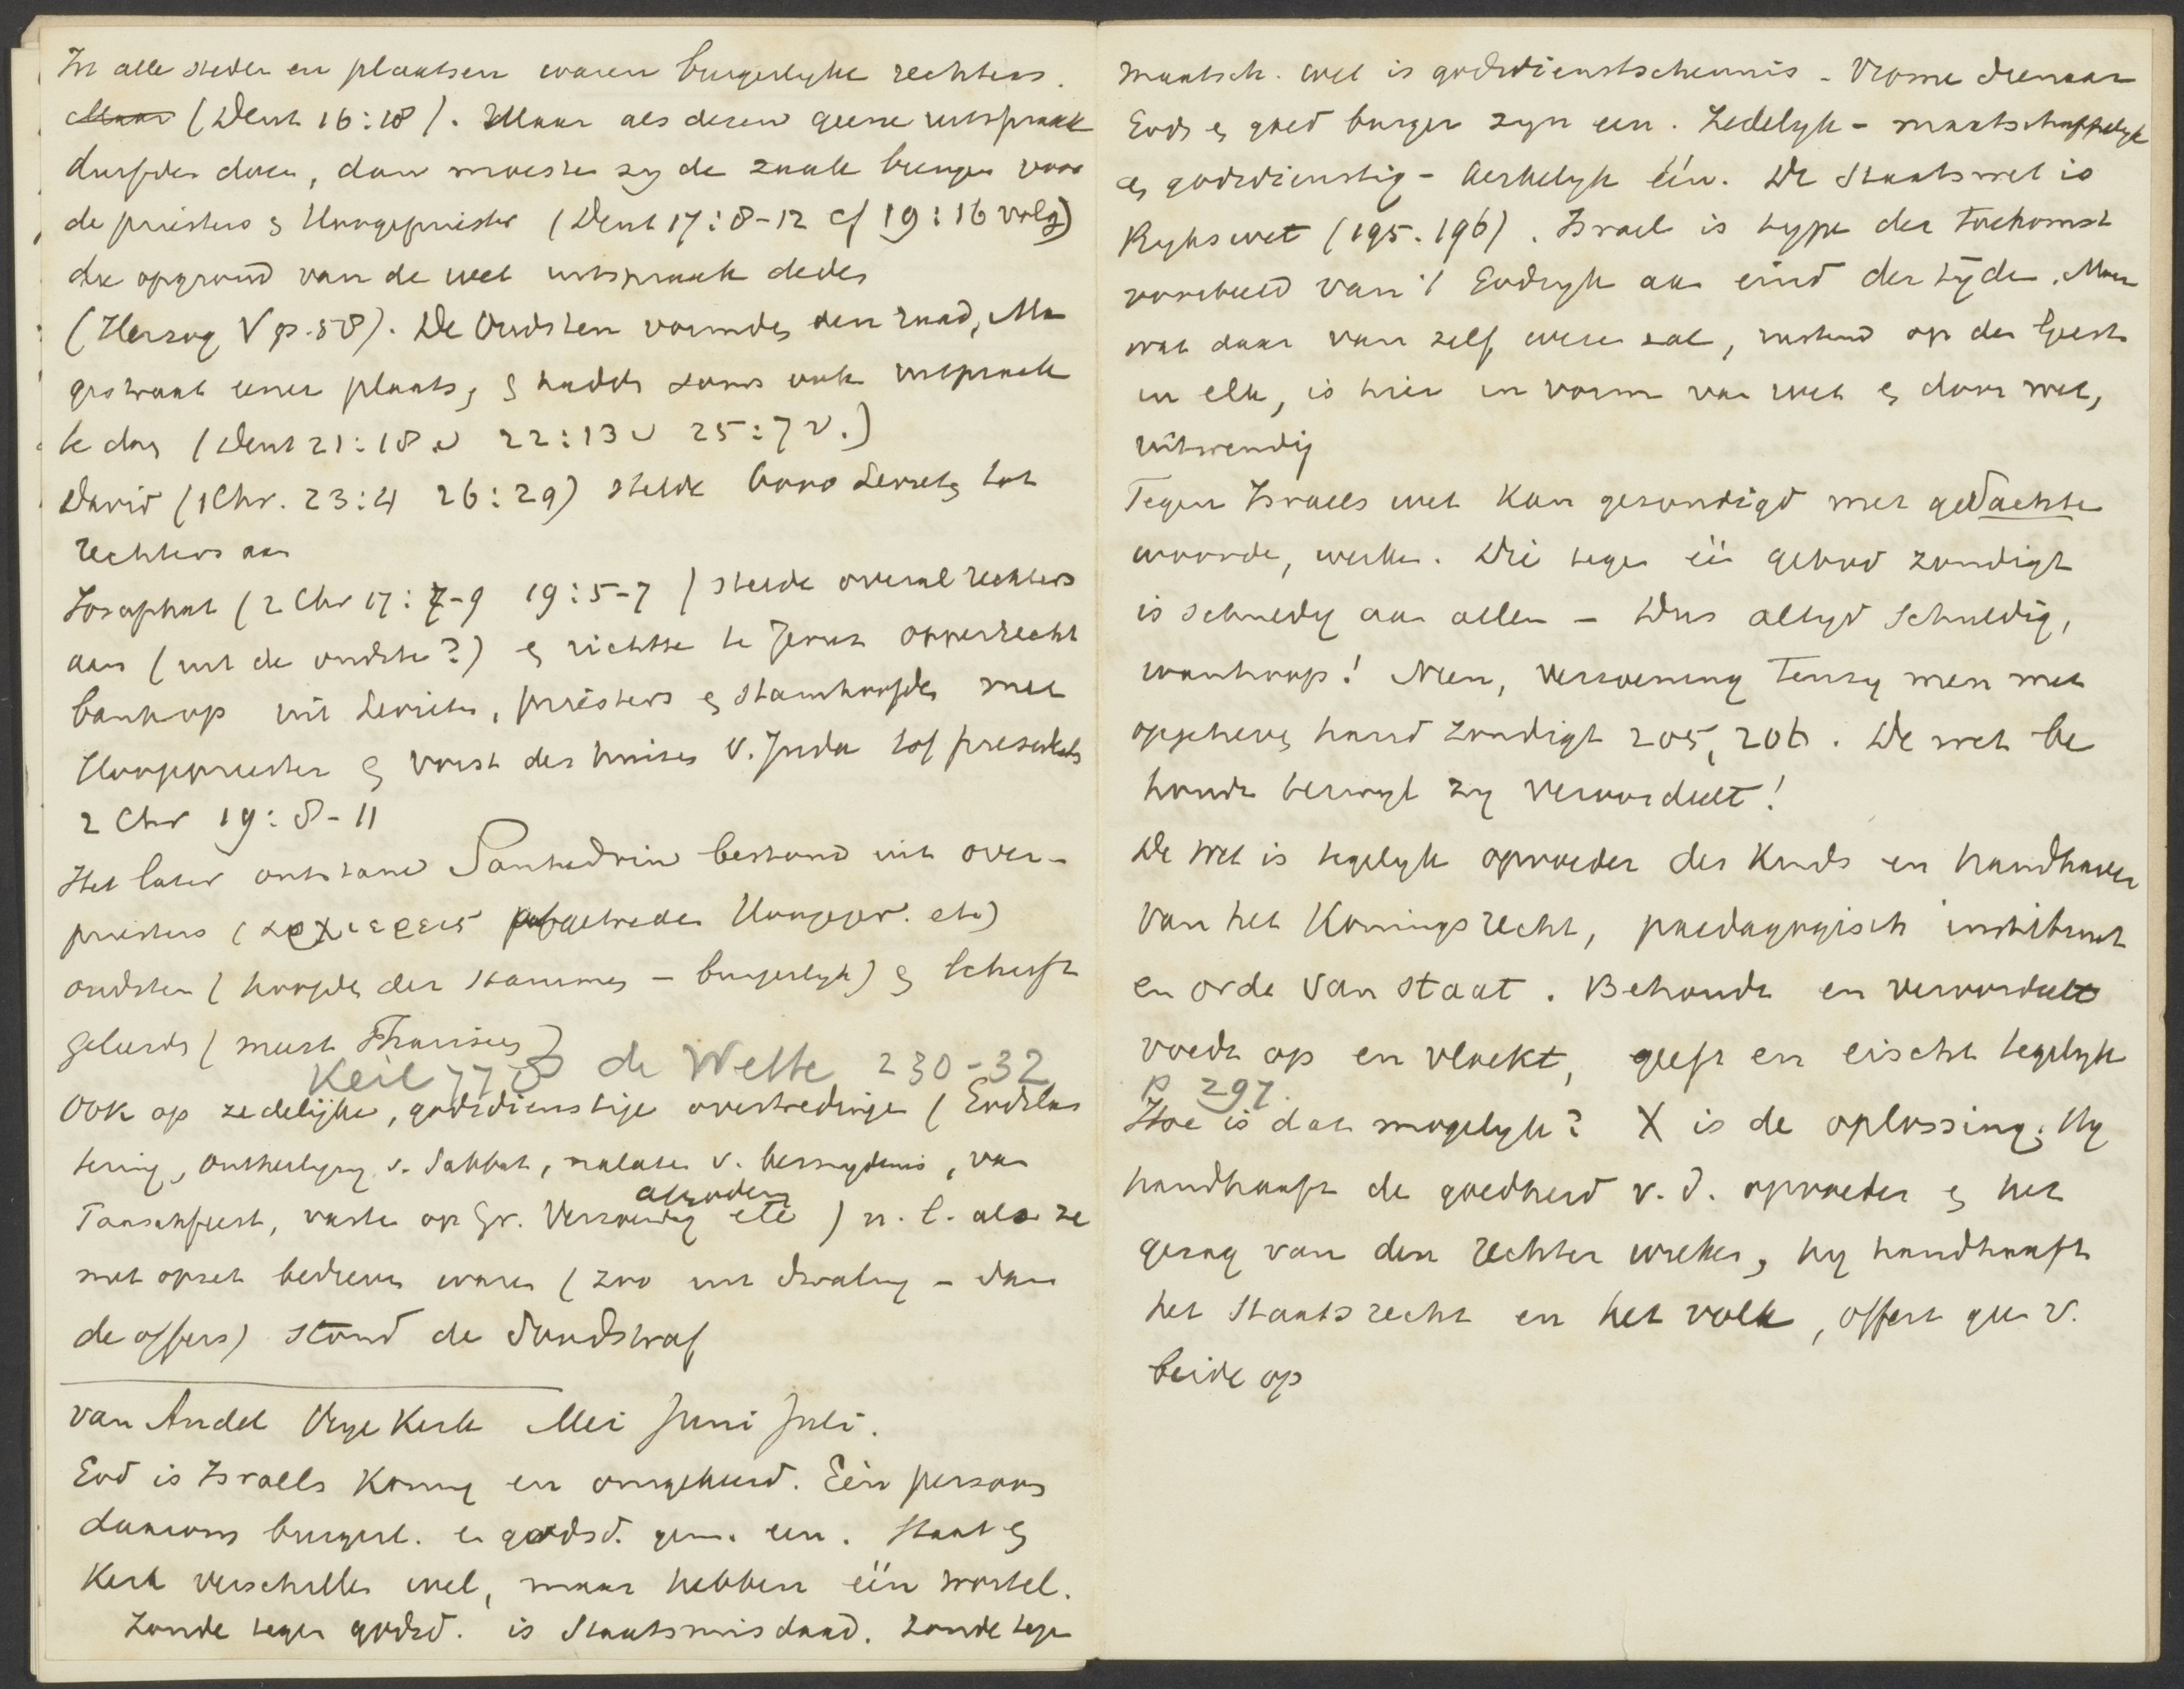 In alle steden en plaatsen waren burgerlyke rechters.
Maar (Deut 16:18). Maar als dezen geene uitspraak
durfden doen, dan moesten zy de zaak brengen voor
de priesters & Hoogepriester (Deut 17:8-12 cf 19:16 volg)
die opgrond van de wet uitspraak deden
(Herzog V p. 58). De Oudsten vormden den raad, Ma
gistraat eener plaats, & hadden soms ook uitspraak
te doen (Deut 21:18 v 22:13 v 25:7 v.)
David (1 Chr. 23:4 26:29) stelde 6000 Levieten tot
rechters aan
Josaphat (2 Chr 17:7-9 19:5-7) stelde overal rechters
aan (uit de oudsten?) & richtte te Jeruz opperrecht
bank op uit Levieten, priesters & stamhoofden met
Hoogepriester & vorst des huizes v. Juda tot presidents
2 Chr 19:8-11
Het later ontstane Sanhedrin bestond uit over-
priesters (αρχιερεις afgetreden Hoogepr. etc)
oudsten (hoofden der stammen - burgerlyk) & schrift
geleerds (meest Pharisees)
Keil 778 de Wette 230-32
Ook op zedelijke, godsdienstige overtredingen (Godslas
tering, ontheiliging v. Sabbat, nalaten v. besnydenis, van
Paaschfeest, vasten op Gr. Verzoendag afgoderij etc) n.l. als ze
met opzet bedreven waren (zoo uit dwaling - dan
de offers) stond de doodstraf
van Andel Vrye Kerk Mei Juni Juli.
God is Israels Koning en omgekeerd. Eén persoon
daarom burgerl. en godsd. gem. een. Staat &
Kerk verschillen wel, maar hebben één wortel.
Zonde tegen godsd. is Staatsmisdaad. Zonde tegen
maatsch. wet is godsdienstschennis - Vrome dienaar
Gods & goed burger zyn een. Zedelyk - maatschappelyk
& godsdienstig - kerkelyk één. De Staatswet is
Rykswet (195. 196). Israel is type der toekomst
voorbeeld van 't Godsryk aan eind der tyden. Maar
wat daar van zelf wezen zal, rustend op den Geest
in elk, is hier in vorm van wet & door wet,
uitwendig
Tegen Israels wet kan gezondigd met gedachten
woorden, werken. Die tegen één gebod zondigt
is schuldig aan allen - Dus altyd schuldig,
wanhoop! Neen, verzoening Tenzy men met
opgeheven hand zondigt 205, 206. De wet be
houdt terwyl zy veroordeelt!
De wet is tegelyk opvoeder des kinds en handhaver
van het Koningsrecht, paedagogisch instituut
en orde van staat. Behoudt en veroordeelt
voedt op en vloekt, geeft en eischt tegelyk
p 297.
Hoe is dat mogelyk? X is de oplossing. Hy
handhaaft de goedheid v. d. opvoeder & het
gezag van den rechter wreker, hy handhaaft
het Staatsrecht en het volk, offert geen v.
beide op